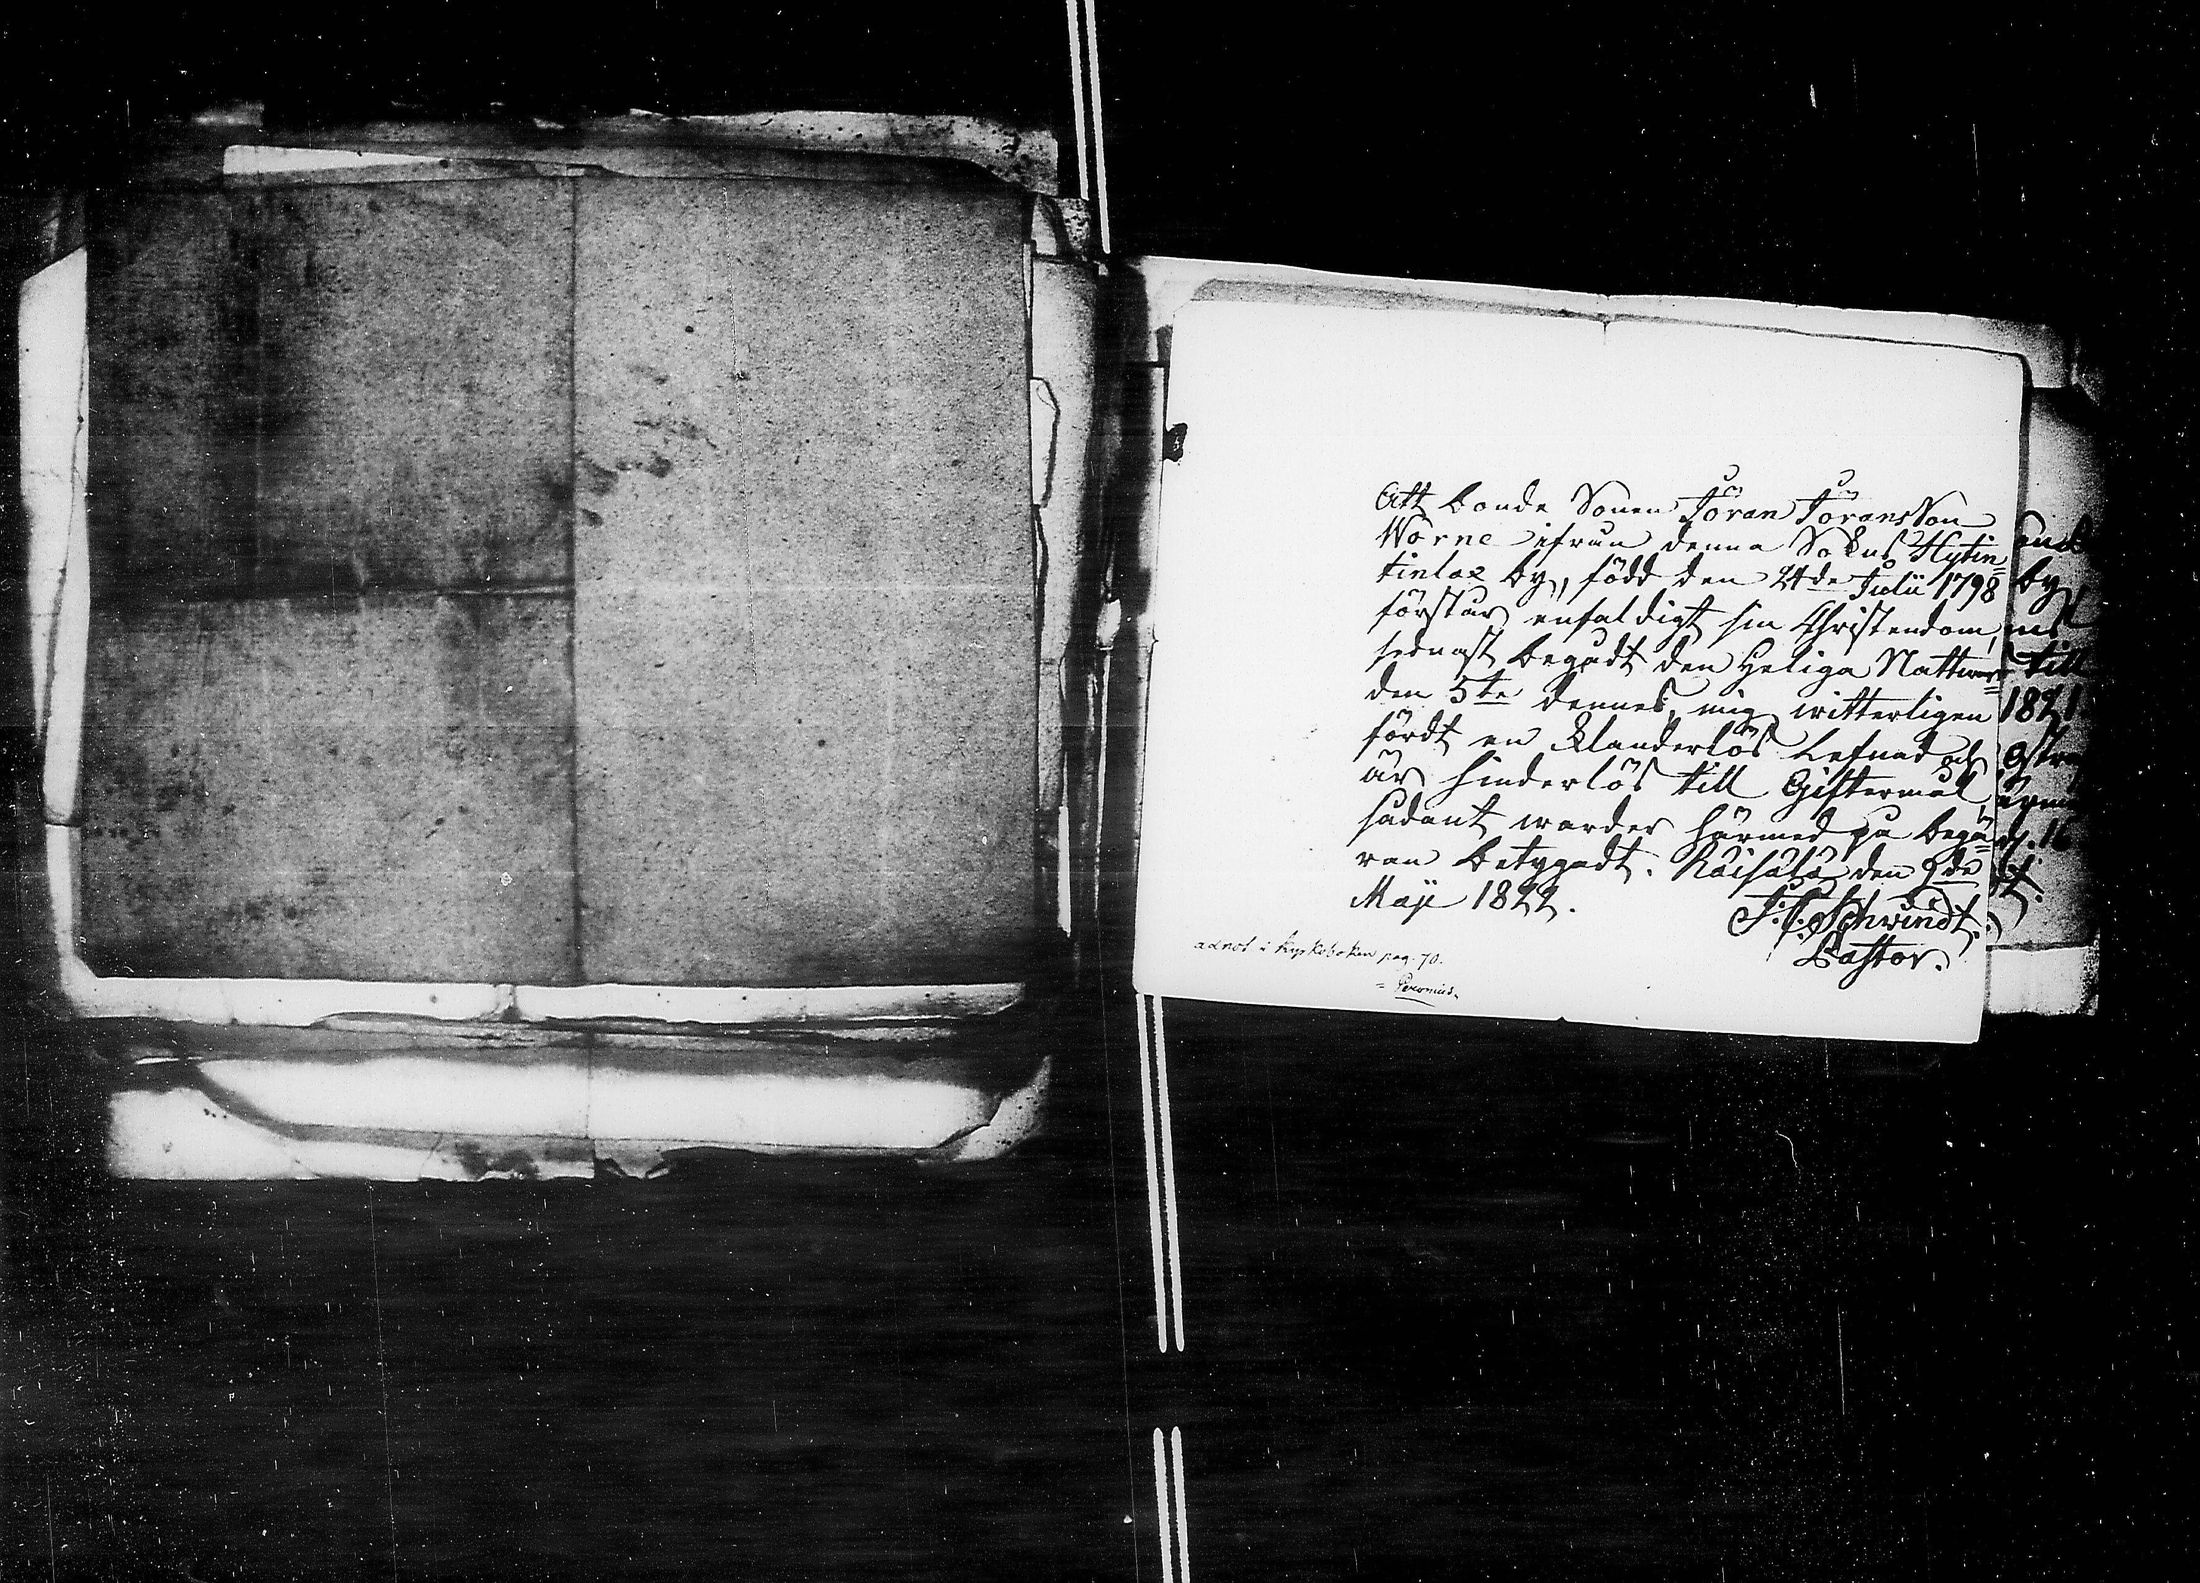 Att bonde Sonen Jöran JöransSon
Wörne ifrån denna Sokns Hytin=
tinlax by, född den 24de Julii 1798
förstår enfaldigt sin Christendom,
sednast begådt den Heliga Nattward
den 5te dennes, mig witterligen
fördt en Klanderlös Lefnad och
är hinderlös till Giftermål,
sådant warder härmed på begä=
ran betygadt. Räisälä den 9de
Maji 1822.
J. C. Schwindt.
Pastor.
adnot i kyrkoboken pag. 70.
by
till
1821